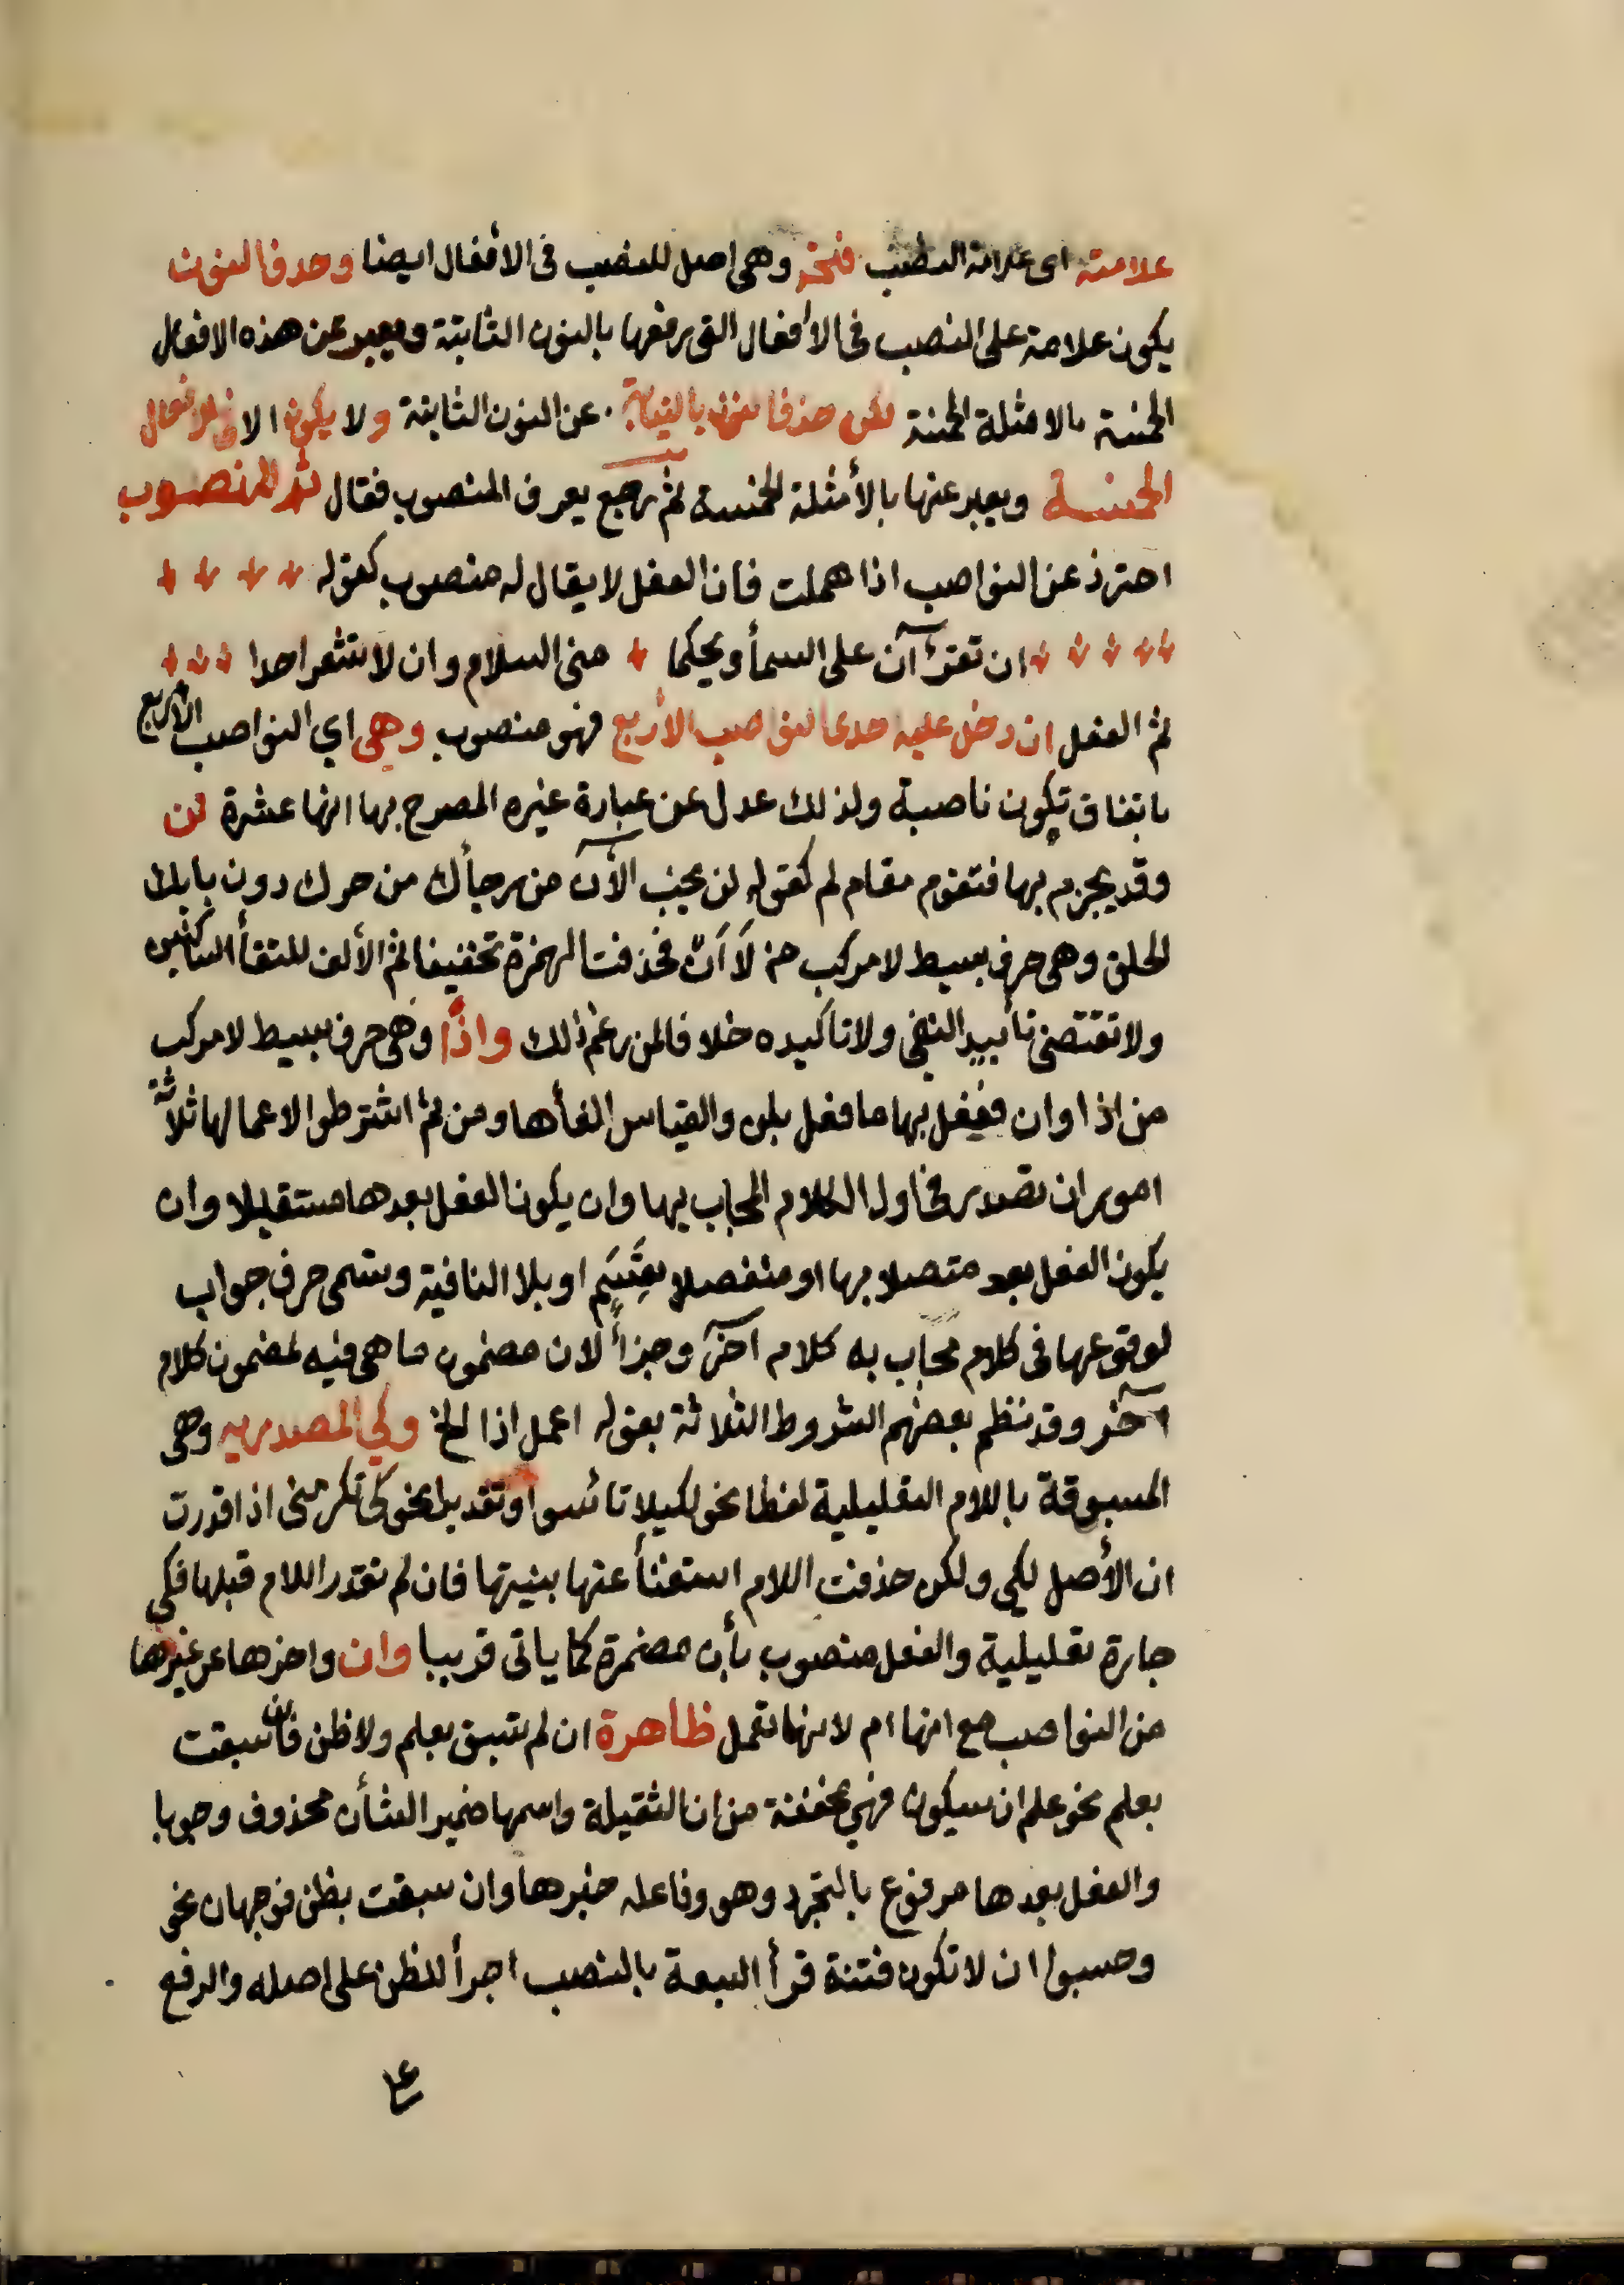 علامته اى علامة النصب فتحة وهى اصل للنصب فى الافعال ايضا وحذف النون
يكون علامة على النصب فى الأفعال التى رفعها بالنون الثابتة ويعبر عن هذه الافعال
الخمسة بالامثلة الخمسة لكن حذف النون بالنيابة عن النون الثابتة ولا يكون الا فى الافعال
الخمسة ويعبر عنها بالأمثلة الخمسة ثم رجع يعرف المنصوب فقال ثم المنصوب
احترز عن النواصب اذا هملت فان الفعل لا يقال له منصوب كقوله
ان تقرآن على اسمأ ويحكما منى السلام وان لا تشعر احدا
ثم الفعل ان دخل عليه احدى النواصب الأربع فهو منصوب وهى اي النواصب الأربع
باتفاق تكون ناصبة ولذلك عدل عن عبارة غيره المصرح بها انها عشرة لن
وقد يجزم بها فتقوم مقام لم كقوله لن يخب الآن من رجأك من حرك دون بابك
الحلق وهى حرف بسيط لا مركب من لا أن فحذفت الهمزة تخفيفا ثم الألف للتقأ الساكنين
ولا تقتضى تأبيد النفى ولا تاكيده خلافا لمن زعم ذلك واذًا وهى حرف بسيط لا مركب
من اذا وان ففعل بها ما فعل بلن والقياس الغأها ومن ثم اشترطوا لاعمالها ثلاثة
امور ان تصدر فى اول الكلام المجاب بها وان يكون الفعل بعدها مستقبلا وان
يكون الفعل بعد متصلا بها او منفصلا بقَسَمٍ او بلا النافية وتسمى حرف جواب
لوقوعها فى كلام مجاب به كلام آخر وجزأ لان مضمون ما هى فيه لمضمون كلام
آخر وقد نظم بعضهم الشروط الثلاثة بقوله اعمل اذا الخ وكي المصدريه وهى
المسبوقة باللام التعليلية لفظا نحو لكيلا تائسوا او تقديرا نحو كى تكرمنى اذا قدرت
ان الأصل لكي ولكن حذفت اللام استغنأ عنها بنيتها فان لم تقدر اللام قبلها فكى
جارة تعليلية والفعل منصوب بأن مضمرة كما ياتى قريبا وان واخرها عن غيرها
من النواصب مع انها ام لانها تعمل ظاهرة ان لم تسبق بعلم ولا ظن فان سبقت
بعلم نحو علم ان سيكون فهي مخففة من ان الثقيلة واسمها ضمير الشأن محذوف وجوبا
والفعل بعدها مرفوع بالتجرد وهو وفاعله خبرها وان سبقت بظن فوجهان نحو
وحسبوا ان لا تكون فتنة قرأ السبعة بالنصب اجرأ للظن على اصله والرفع